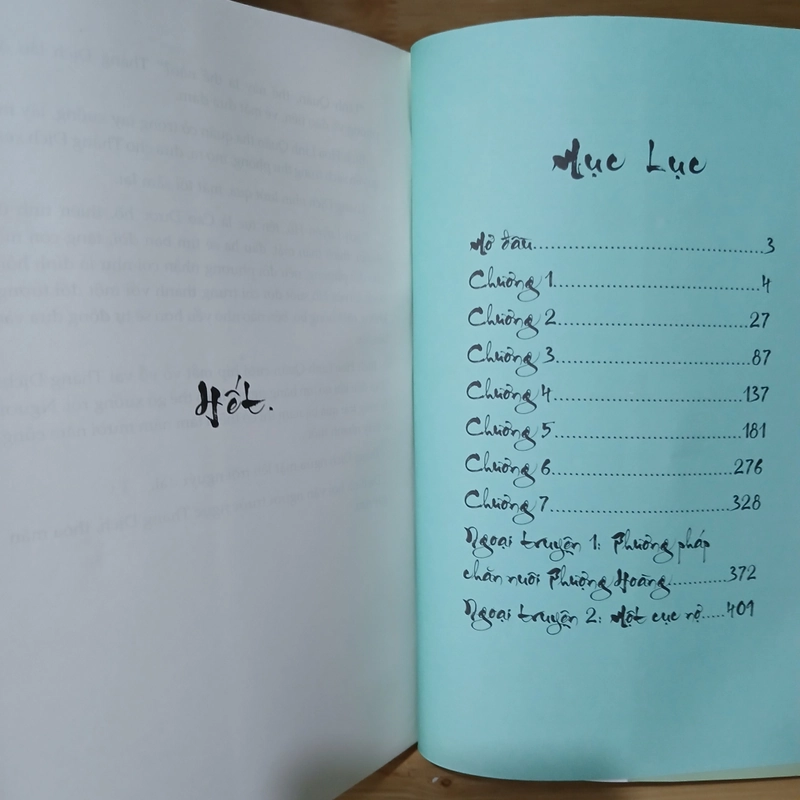 Hết.
Mục Lục
Mở đầu..............................3
Chương 1..............................4
Chương 2..............................27
Chương 3..............................87
Chương 4..............................137
Chương 5..............................181
Chương 6..............................276
Chương 7..............................328
Ngoại truyện 1: Phương pháp
chăn nuôi Phượng Hoàng............372
Ngoại truyện 2: Một cục nợ.....401